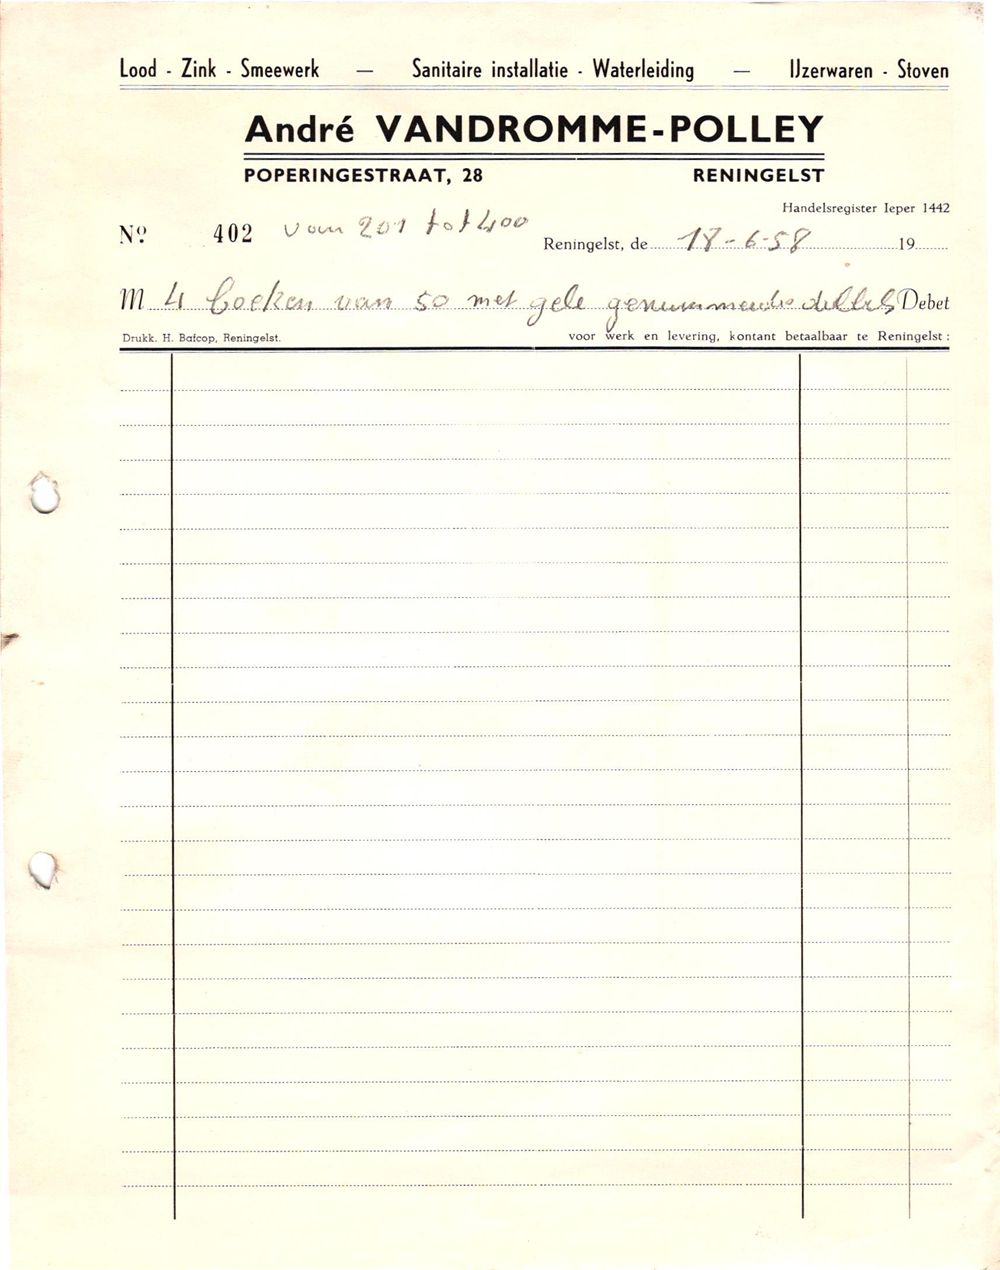 Lood - Zink - Smeewerk — Sanitaire installatie - Waterleiding — IJzerwaren - Stoven
André VANDROMME-POLLEY
POPERINGESTRAAT, 28 RENINGELST
Handelsregister Ieper 1442
Nº 402 van 201 tot 400
Reningelst, de 18-6-58 19
M 4 boeken van 50 met gele genummerde dubbels Debet
Drukk. H. Bafcop, Reningelst. voor werk en levering, kontant betaalbaar te Reningelst :